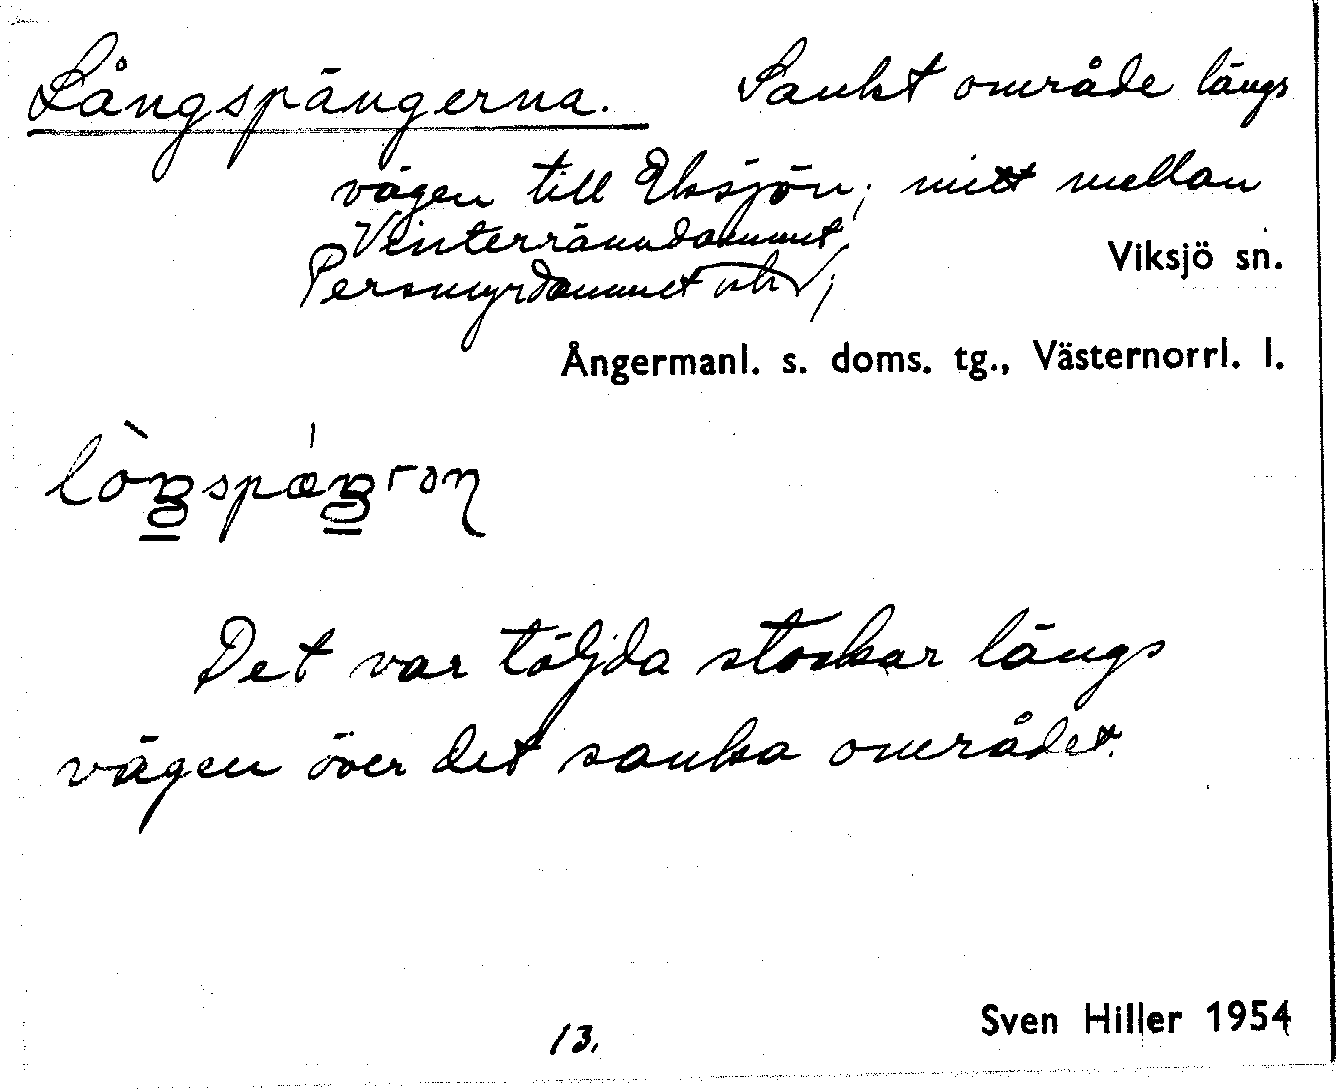 Långspängerna. Sankt område längs
vägen till Eksjön, mitt mellan
Vinterränndammet,
Persmyrdammet och
Viksjö sn.
Ångermanl. s. doms. tg., Västernorrl. l.
Det var täljda stockar längs
vägen över det sanka området.
13.
Sven Hiller 1954